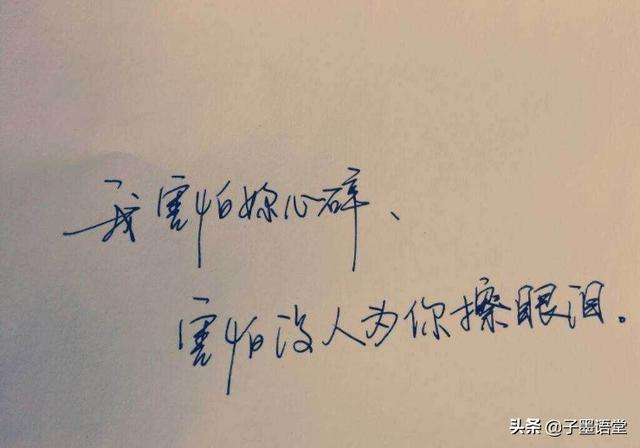 我害怕妳心碎、
害怕没人为你擦眼泪。
头条 @子墨语堂